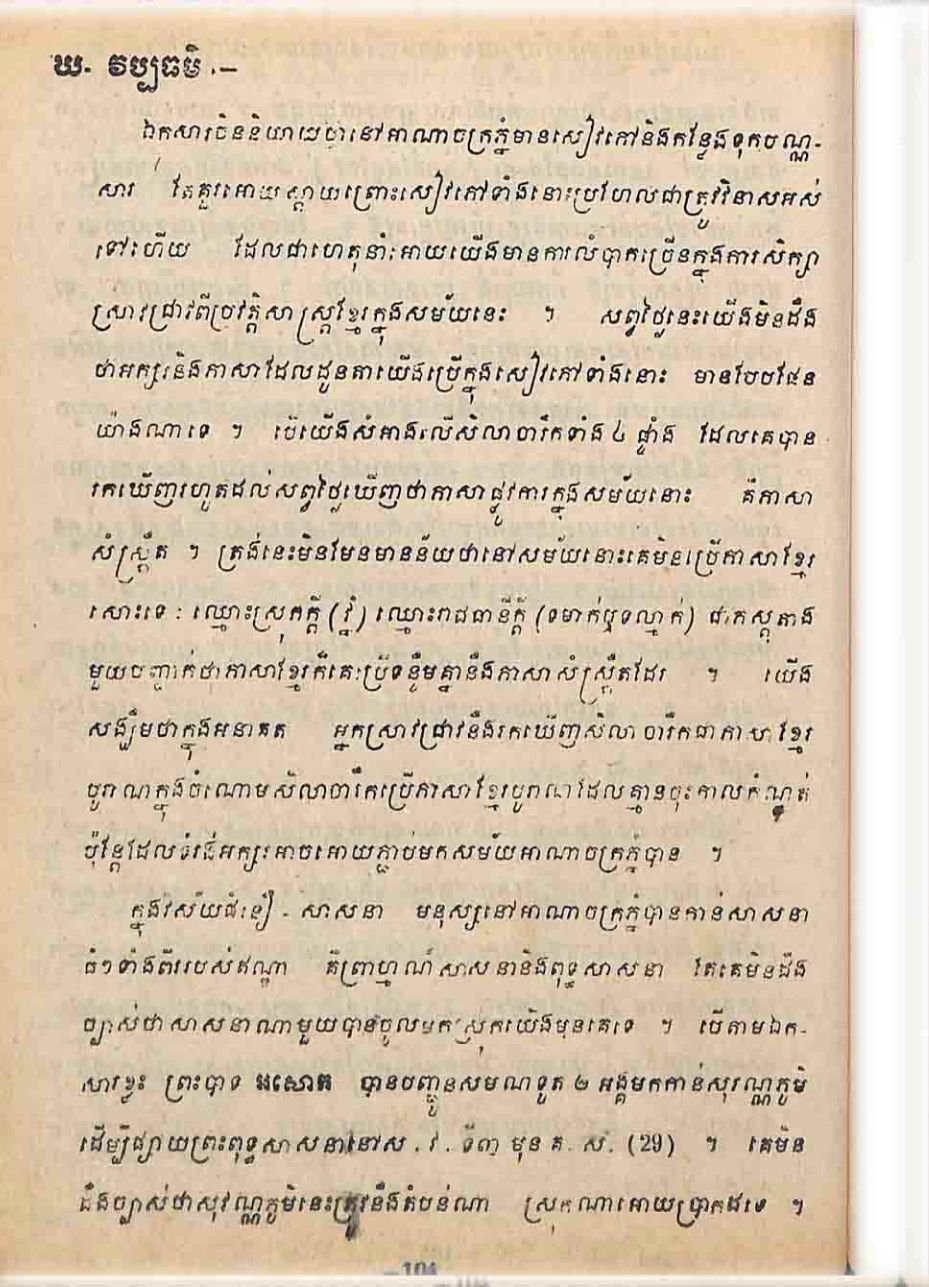 ឃ. វប្បធម៌ .–
ឯកសារចិននិយាយថានៅអាណាចក្រភ្នំមានសៀវភៅនិងកន្លែងទុកបណ្ណ-
សារ តែគួរអោយស្តាយព្រោះសៀវភៅទាំងនោះប្រហែលជាត្រូវវិនាសអស់
ទៅហើយ ដែលជាហេតុនាំអោយយើងមានការលំបាកច្រើនក្នុងការសិក្សា
ស្រាវជ្រាវពីប្រវត្តិសាស្ត្រខ្មែរក្នុងសម័យនេះ ។ សព្វថ្ងៃនេះយើងមិនដឹង
ថាអក្សរនិងភាសាដែលដូនតាយើងប្រើក្នុងសៀវភៅទាំងនោះ មានបែបផែន
យ៉ាងណាទេ ។ បើយើងសំអាងលើសិលាចារឹកទាំង ៤ ផ្ទាំង ដែលគេបាន
រកឃើញរហូតដល់សព្វថ្ងៃឃើញថាភាសាផ្លូវការក្នុងសម័យនោះ គឺភាសា
សំស្ក្រឹត ។ ត្រង់នេះមិនមែនមានន័យថានៅសម័យនោះគេមិនប្រើភាសាខ្មែរ
សោះទេ : ឈ្មោះស្រុកក្តី (វ្នំ) ឈ្មោះរាជធានីក្តី (ទមាក់ឬទល្មាក់) ជាភស្តុតាង
មួយបញ្ជាក់ថាភាសាខ្មែរក៏គេប្រើទន្ទឹមគ្នានឹងភាសាសំស្ក្រឹតដែរ ។ យើង
សង្ឃឹមថាក្នុងអនាគត អ្នកស្រាវជ្រាវនឹងរកឃើញសិលាចារឹកជាភាសាខ្មែរ
បូរាណក្នុងចំណោមសិលាចារឹកប្រើភាសាខ្មែរបូរាណដែលគ្មានចុះកាលកំណត់
ប៉ុន្តែដែលទំរង់អក្សរអាចអោយភ្ជាប់មកសម័យអាណាចក្រភ្នំបាន ។
ក្នុងវិស័យជំនឿ - សាសនា មនុស្សនៅអាណាចក្រភ្នំបានកាន់សាសនា
ធំៗទាំងពីររបស់ឥណ្ឌា គឺព្រាហ្មណ៍សាសនានិងពុទ្ធសាសនា តែគេមិនដឹង
ច្បាស់ថាសាសនាណាមួយបានចូលមកស្រុកយើងមុនគេទេ ។ បើតាមឯក-
សារខ្លះ ព្រះបាទ អសោត បានបញ្ជូនសមណទូត ២ អង្គមកកាន់សុវណ្ណភូមិ
ដើម្បីផ្សាយព្រះពុទ្ធសាសនានៅស . វ . ទី៣ មុន គ . ស. (29) ។ គេមិន
ដឹងច្បាស់ថាសុវណ្ណភូមិនេះត្រូវនឹងតំបន់ណា ស្រុកណាអោយប្រាកដទេ ។
–104